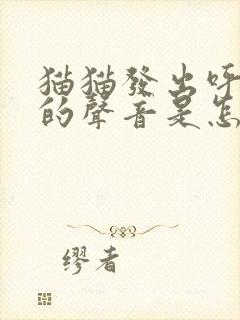 猫猫發出呼
的聲音是怎
缪者